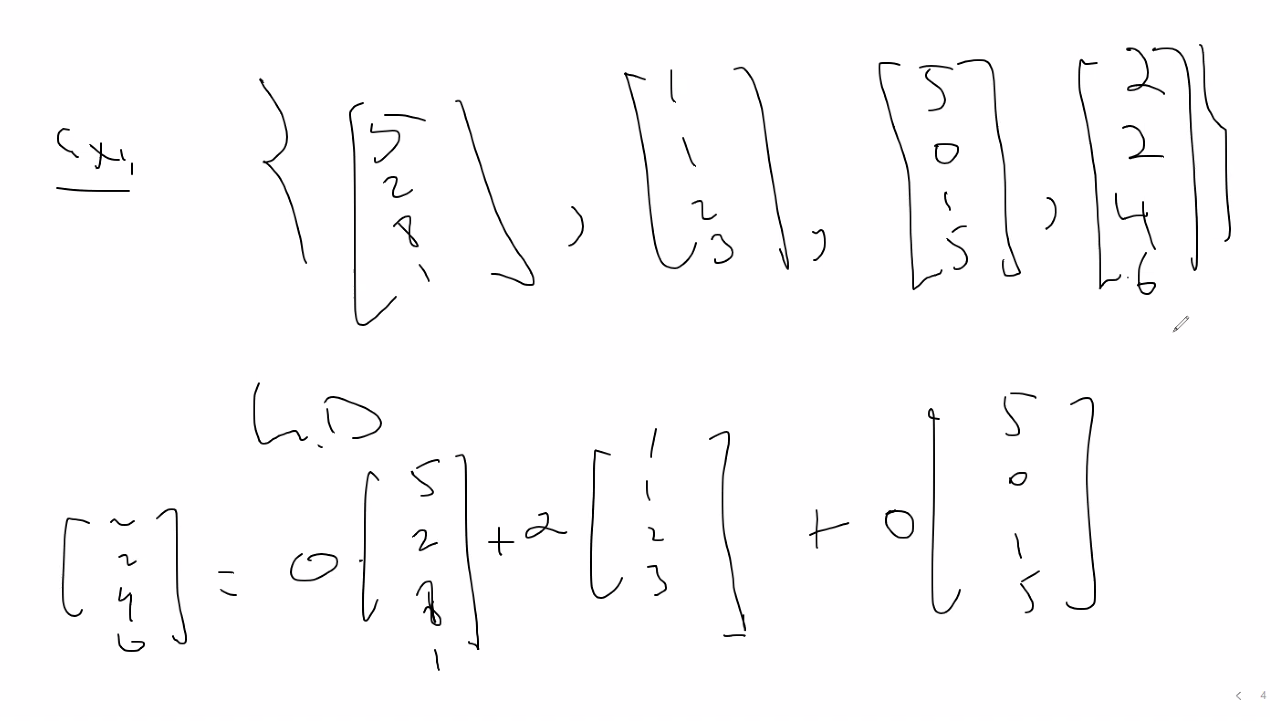 Ex1, { [5 2 8 1] , [1 1 2 3] , [5 0 1 5] , [2 2 4 6] }
L.D
[2 2 4 6] = 0 [5 2 8 1] + 2 [1 1 2 3] + 0 [5 0 1 5]
< 4